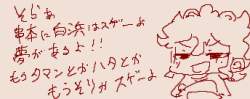 そらぁ
串本に白浜はスゲーよ
夢があるよ!!
もうタマンとかハタとか
もうそりゃスゲーよ